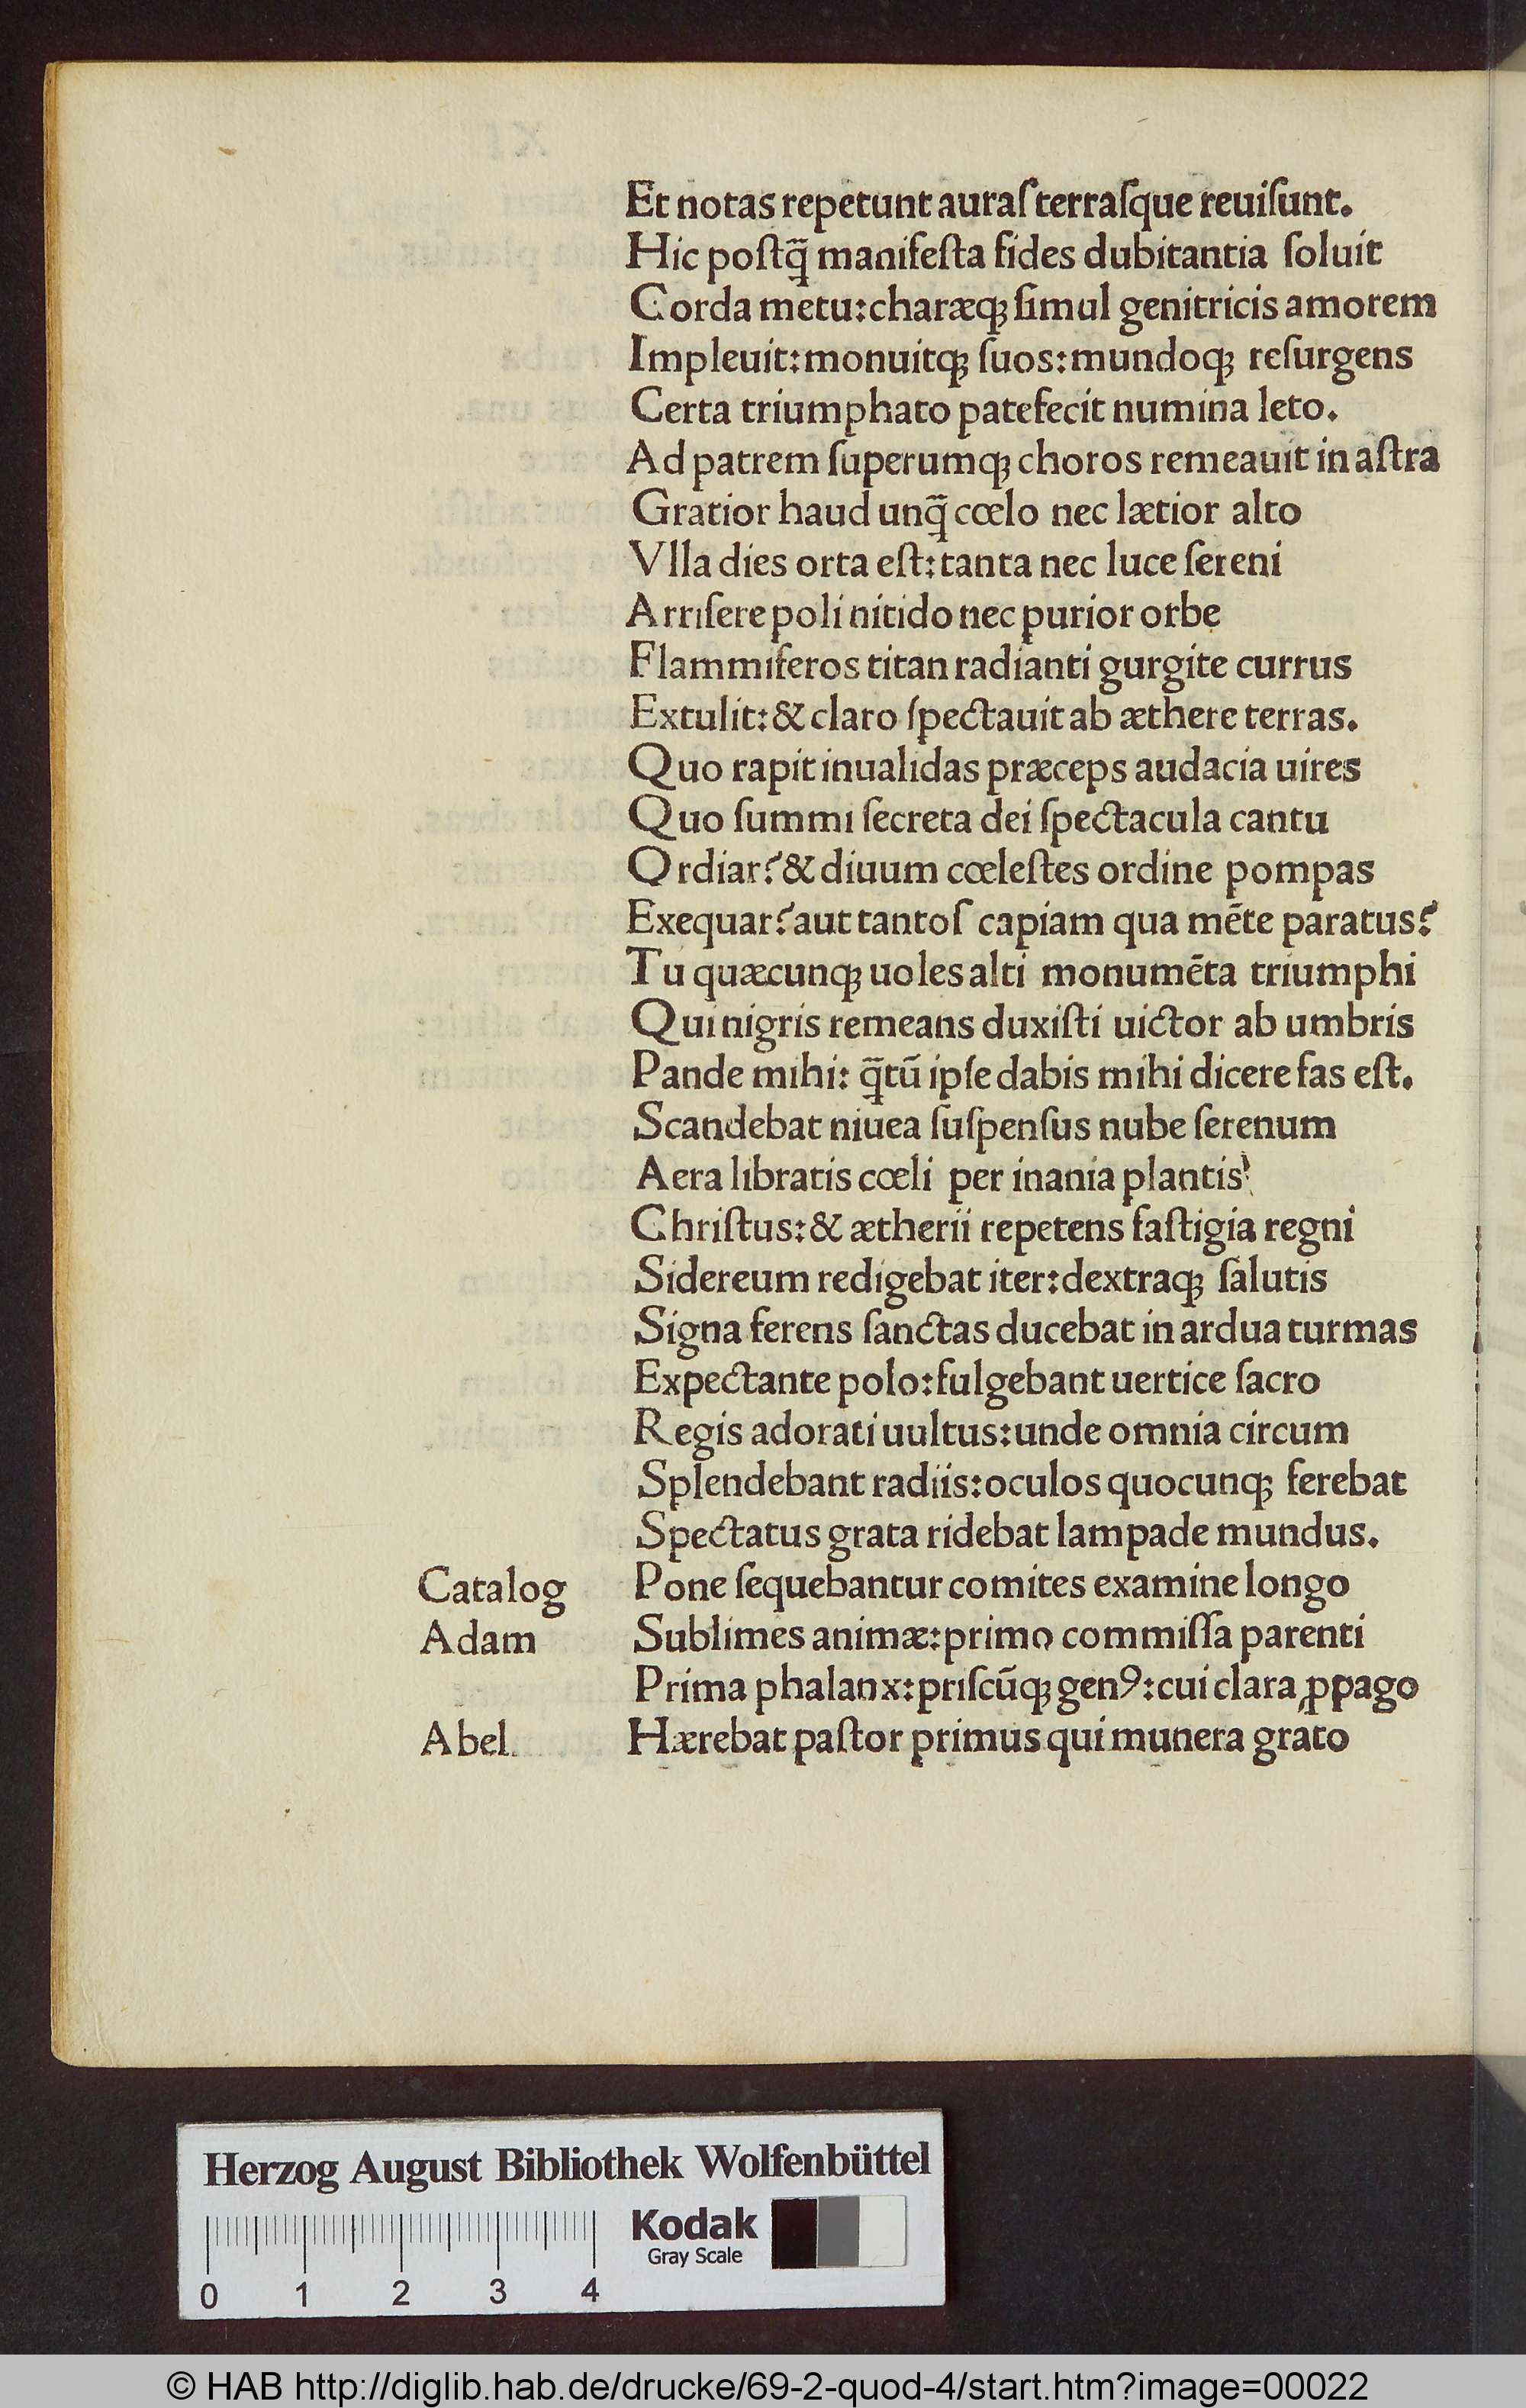 Et notas repetunt auraſ terraſque reuiſunt.
Hic poſtq̃ manifeſta fides dubitantia ſoluit
Corda metu:charæq; ſimul genitricis amorem
Impleuit:monuitq; ſuos:mundoq; reſurgens
Certa triumphato patefecit numina leto.
Ad patrem ſuperumq; choros remeauit in aſtra
Gratior haud unq̃ cœlo nec lætior alto
Vlla dies orta eſt:tanta nec luce ſereni
Arriſere poli nitido nec purior orbe
Flammiferos titan radianti gurgite currus
Extulit:& claro ſpectauit ab æthere terras.
Quo rapit inualidas præceps audacia uires
Quo ſummi ſecreta dei ſpectacula cantu
Qrdiar?& diuum cœleſtes ordine pompas
Exequar?aut tantoſ capiam qua mēte paratus?
Tu quæcunq; uoles alti monumēta triumphi
Qui nigris remeans duxiſti uictor ab umbris
Pande mihi: q̃tū ipſe dabis mihi dicere fas eſt.
Scandebat niuea ſuſpenſus nube ſerenum
Aera libratis cœli per inania plantis
Chriſtus:& ætherii repetens faſtigia regni
Sidereum redigebat iter:dextraq; ſalutis
Signa ferens ſanctas ducebat in ardua turmas
Expectante polo:fulgebant uertice ſacro
Regis adorati uultus:unde omnia circum
Splendebant radiis:oculos quocunq; ferebat
Spectatus grata ridebat lampade mundus.
Catalog Pone ſequebantur comites examine longo
Adam Sublimes animæ:primo commiſſa parenti
Prima phalanx:priſcūq; genꝰ:cui clara ꝓpago
Abel. Hærebat paſtor primus qui munera grato
Herzog August Bibliothek Wolfenbüttel
Kodak
Gray Scale
0 1 2 3 4
© HAB http://diglib.hab.de/drucke/69-2-quod-4/start.htm?image=00022